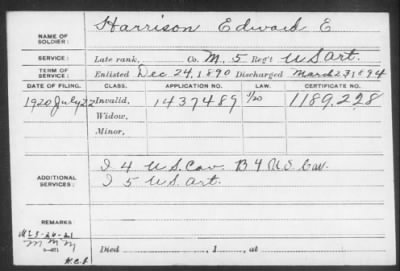 NAME OF SOLDIER: Harrison Edward E
SERVICE: Late rank, Co. M, 5 Reg't U S art.
TERM OF SERVICE: Enlisted Dec 24, 1890 Discharged March 23 1894
DATE OF FILING. CLASS. APPLICATION NO. CERTIFICATE NO.
1920 July 22 Invalid, 1437489 1189,228
Widow,
Minor,
ADDITIONAL SERVICES: I 4 U.S. Cav. B 4 U.S. Cav.
I 5 U.S. art.
REMARKS:
Died , 1 , at